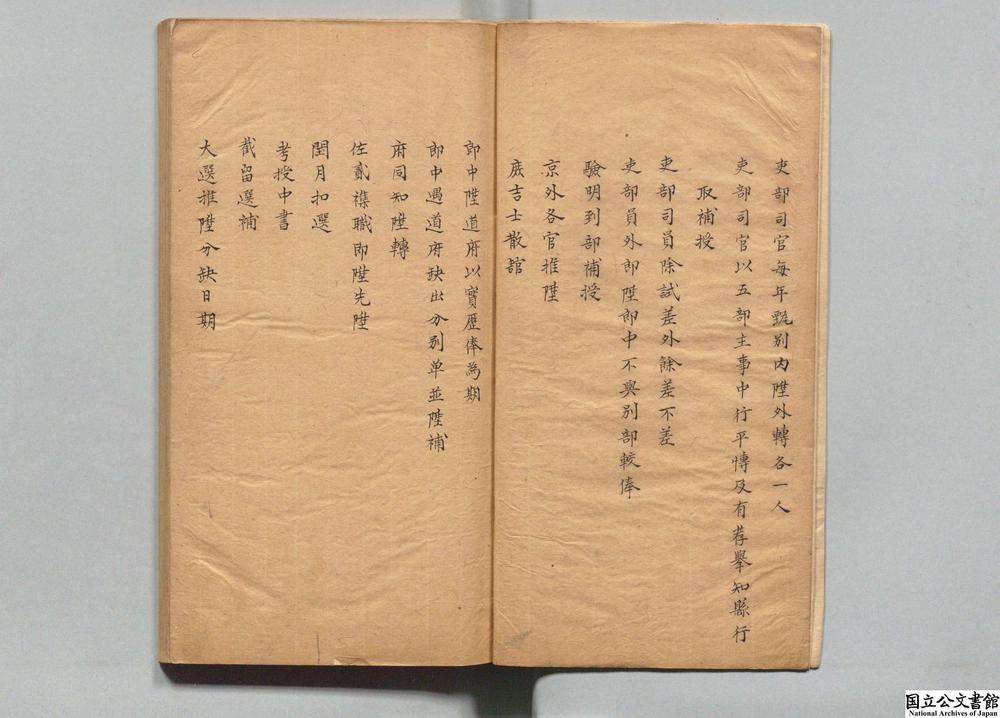 吏部司官每年甄别内陞外轉各一人
吏部司官以五部主事中行平愽及有荐舉知縣行
取補授
吏部司員除試差外餘差不差
吏部員外郎陞郎中不與别部較俸
驗明到部補授
京外各官推陞
庶吉士散館
郎中陞道府以實歷俸為期
郎中遇道府缺出分别单並陞補
府同知陞轉
佐貳襍職即陞先陞
閏月扣選
考授中書
截留選補
大選推陞分缺日期
国立公文書館
National Archives of Japan